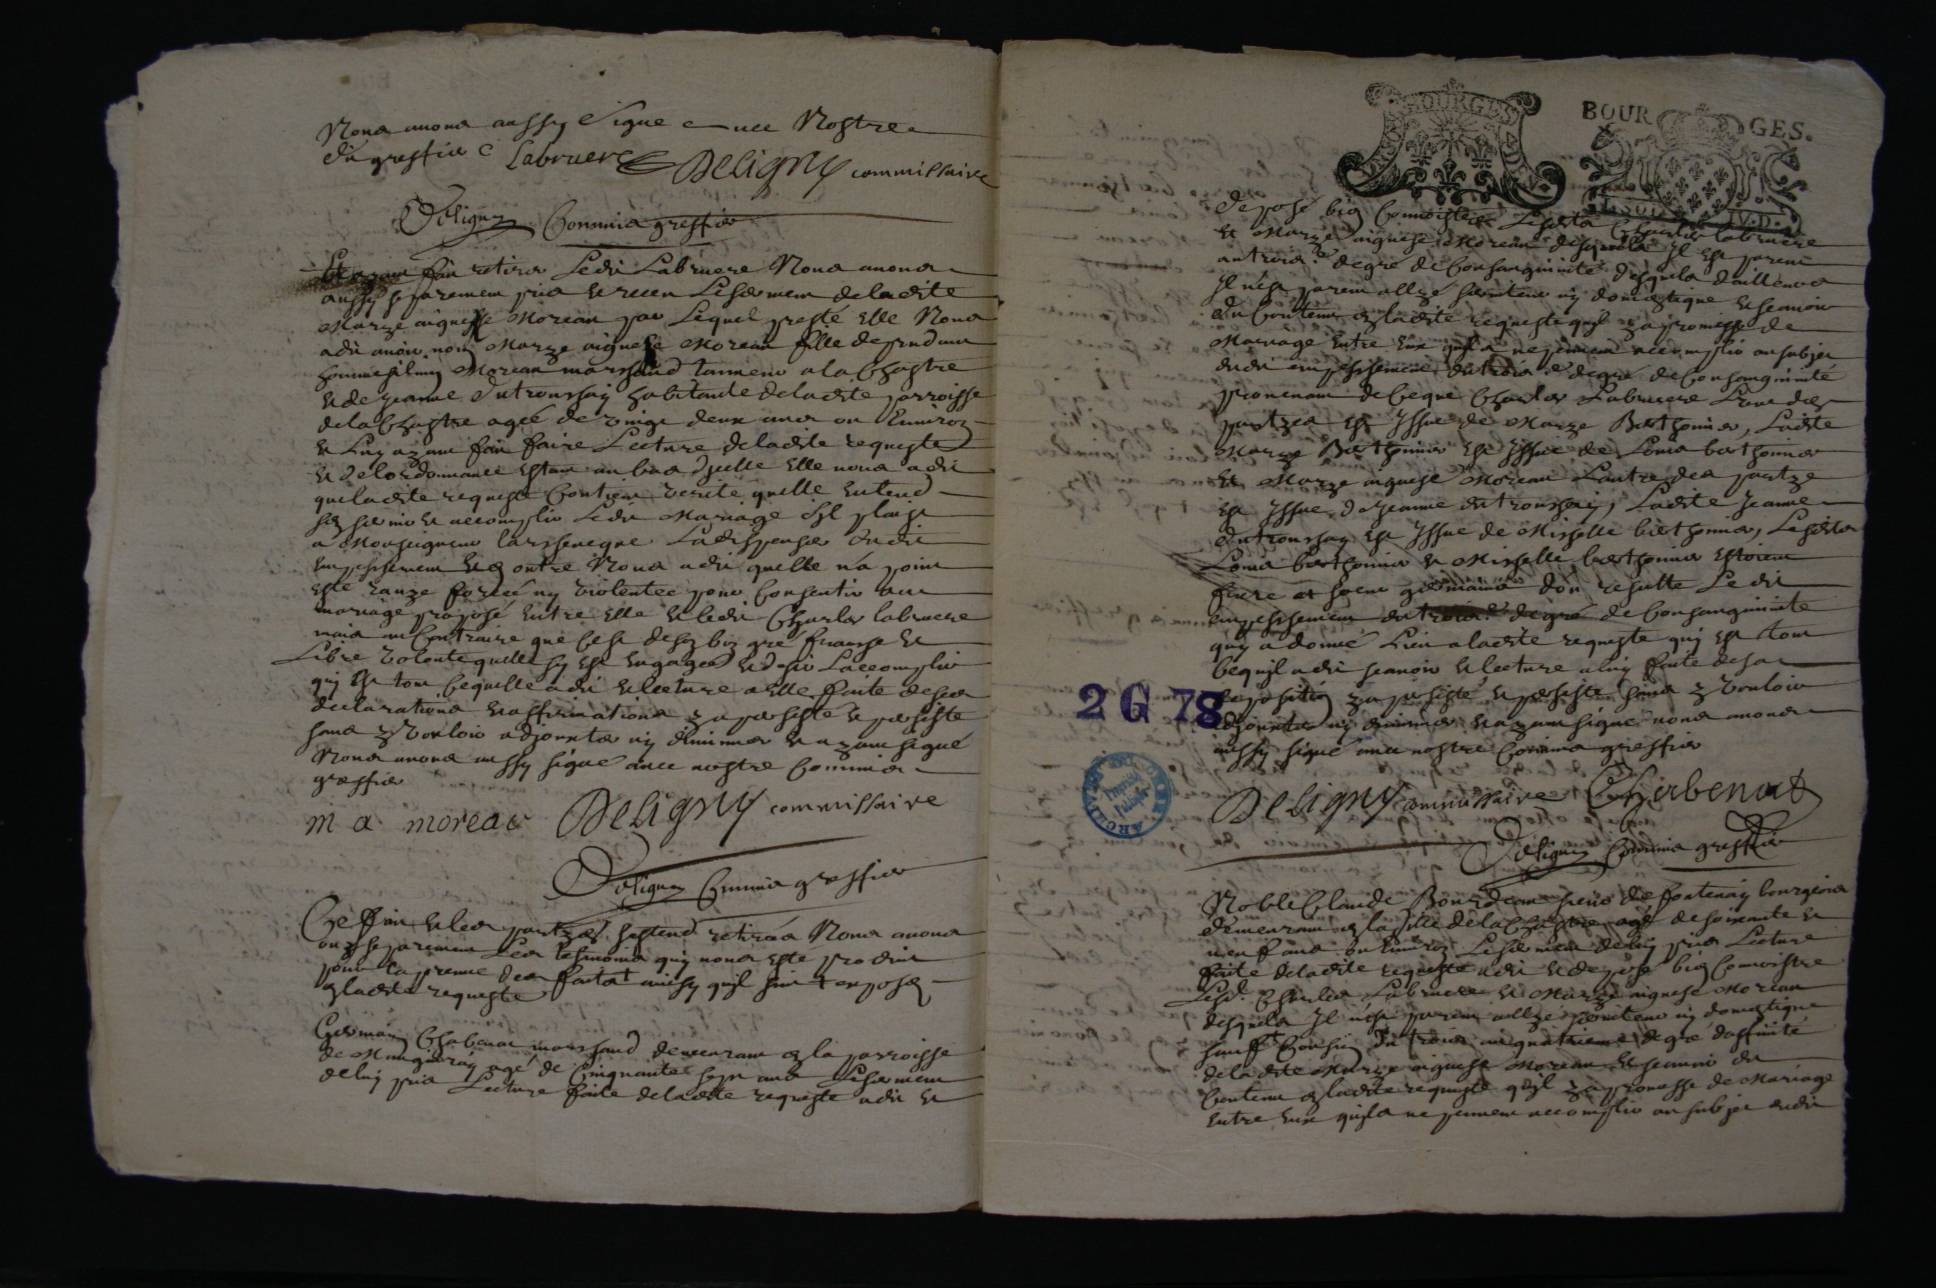 Nous avons aussy signe avec Nostre
dit greffier C Labruere Deligny commissaire
Deligny Commis greffier
Et ayant fait retirer Ledit Labruere Nous avons
aussy separement pris et receu Le serment de ladite
Marye aignesse Moreau par Lequel presté Elle Nous
a dit avoir nom Marye aignesse Moreau fille de prudent
homme silvain Moreau marchand tanneur a la Chastre
et de Jeanne Dutronssay habitante de ladite parroisse
de la Chastre agée de vingt deux ans ou Environ
et Luy ayant fait faire Lecture de ladite requeste
et de lordonnance estant au bas dycelle Elle nous a dit
que ladite requeste Contient verité quelle entend
et accomplir Ledit Mariage sil plaist
a Monseigneur larchevecque La dispenser dudit
empeschement et en outre Nous a dit quelle na point
esté forcée ny violentée pour Consentir au
mariage proposé Entre Elle et ledit Charles labruere
mais au Contraire que cest de son bon gré franche et
Libre volonté quelle sy est engagée et desire Laccomplir
qui est tout ce quelle a dit et lecture a elle faite de ses
declarations et affirmations y a persisté et persiste
sans y vouloir adjouster ny diminuer et ayant signé
Nous avons aussy signé avec nostre Commis
greffier
m a moreau Deligny commissaire
Deligny Commis greffier
Ce fait et les partyes s'estant retirées Nous avons
ouy separement Les tesmoins qui nous ont esté produit
pour la preuve des faits ainsy quil sont exposez
en ladite requeste
Germain Chabenat marchand demeurant en la parroisse
de agé de Cinquante sept ans serment
de luy pris Lecture faite de ladite requeste a dit et
BOURGES
BOUR GES.
IV.D.
deposé bien Connoistre Lesdits Charles labruere
et Marye aignesse Moreau desquels Il est parent
au trois.e degré de Consanguinité desquels dailleurs
Il nest parent allyé serviteur ny domestique et scavoir
du Contenu en ladite requeste quil y a promesse de
Mariage Entre Eux quils ne peuvent accomplir au subjet
dudit empeschement du trois.e degré de Consanguinité
provenant de Ce que Charles Labruere Lune des
partyes est Yssue de Marye Berthomier, Ladite
Marye Berthomier est Yssue de Louis berthomier
et Marye aignesse Moreau Lautre des partye
est Yssue de Jeanne dutronssay, Ladite Jeanne
dutronssay est Yssue de Misselle berthomier, Lesdits
Louis berthomier et Misselle berthomier estoient
frere et soeur germains dou resulte Le dit
empeschement du trois.e degré de Consanguinité
qui a donné Lieu a ladite requeste qui est tout
ce quil a dit scavoir et lecture a luy faite de sa
deposition y a persisté et persiste sans y vouloir
adjouster ny diminuer et ayant signé nous avons
aussy signé avec nostre Commis greffier
2 G 78
Deligny commissaire Chabenat
Deligny Commis greffier
Noble Claude Bourdeau sieur de fontenay bourgeois
demeurant en la ville de la Chastre agé de soixante et
neuf ans ou Environ Le serment de luy pris Lecture
faite de ladite requeste a dit et deposé bien Connoistre
Lesd. Charles Labruere et Marye aignesse Moreau
desquels Il nest parent allyé serviteur ny domestique
sauf Cousin du trois au quatrieme degré daffinité
de ladite Marye aignesse Moreau et scavoir du
Contenu en ladite requeste quil y a promesse de Mariage
Entre Eux quils ne peuvent accomplir au subjet dudit